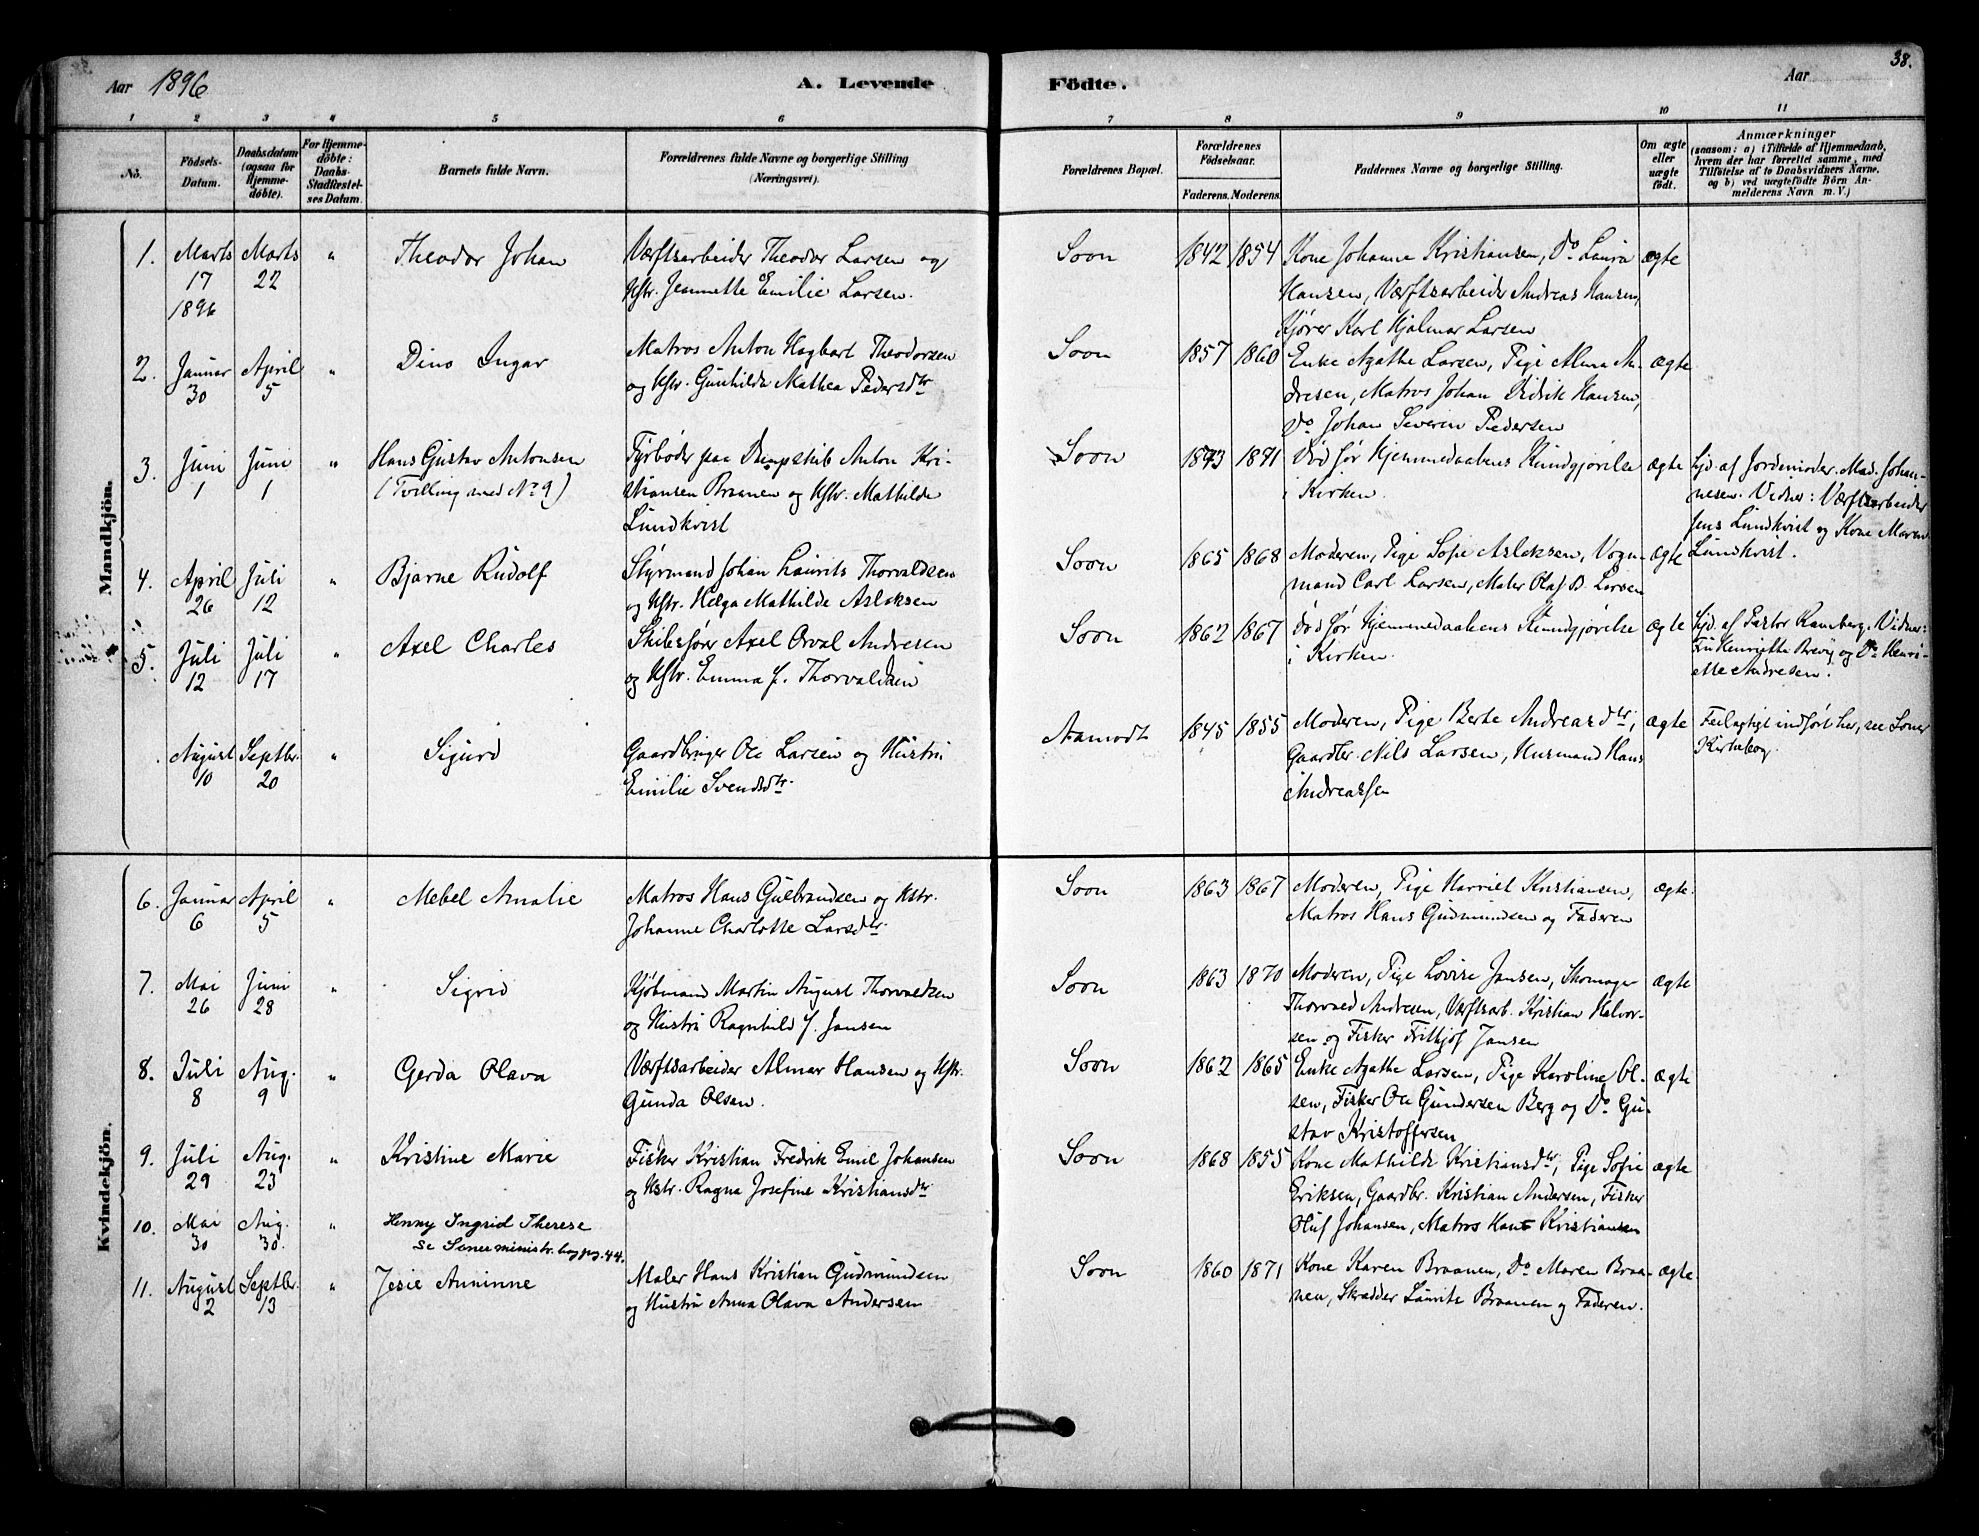 38.
Aar 1896 A. Levende Födte. Aar
1 2 3 4 5 6 7 8 9 10 11
No.
Födsels-
Datum.
Daabsdatum
(ogsaa for
Hjemme-
döbte).
For Hjemme-
döbte:
Daabs-
Stadfæstel-
ses Datum.
Barnets fulde Navn.
Forældrenes fulde Navne og borgerlige Stilling
(Næringsvei).
Forældrenes Bopæl.
Forældrenes
Födselsaar.
Faderens. Moderens.
Faddernes Navne og borgerlige Stilling.
Om ægte
eller
uægte
födt.
Anmærkninger
(saasom: a) i Tilfælde af Hjemmedaab,
hvem der har forrettet samme, med
Tilföielse af to Daabsvidners Navne,
og b) ved uægtefödte Börn An-
melderens Navn m. V.)
Mandkjön.
1. Marts 17 1896 Marts 22 " Theodor Johan
Værftsarbeider Theodor Larsen og
Hstr. Jeannette Emilie Larsen.
Soon 1842 1854
Kone Johanne Kristiansen, Do Laura
Hansen, Værftsarbeider Andreas Hansen,
Kjører Karl Hjalmar Larsen
ægte
2. Januar 30 April 5 " Dino Ingar
Matros Anton Hagbart Theodorsen
og Hstr. Gunhilde Mathea Pedersdtr
Soon 1857 1860
Enke Agathe Larsen, Pige Alma An-
dresen, Matros Johan Didrik Hansen,
Do Johan Severin Pedersen
ægte
3. Juni 1 Juni 1 " Hans Gustav Antonsen
(Tvilling med No 9)
Fyrbøder paa Dampskib Anton Kri-
stiansen Braanen og Hstr. Mathilde
Lundkvist
Soon 1873 1871
Død før Hjemmedaabens Kundgjørelse
i Kirken.
ægte
Hjd. af Jordemoder Mad. Johan-
nesen. Vidner: Værftsarbeider
Jens Lundkvist og Kone Maren
Lundkvist.
4. April 26 Juli 12 " Bjarne Rudolf
Styrmand Johan Laurits Thorvaldsen
og Hstr. Helga Mathilde Aslaksen
Soon 1865 1868
Moderen, Pige Sofie Aslaksen, Vogn-
mand Carl Larsen, Maler Olaf B. Larsen
ægte
5. Juli 12 Juli 17 " Axel Charles
Skibsfører Axel Orval Andresen
og Hstr. Emma f. Thorvaldsen
Soon 1862 1867
Død før Hjemmedaabens Kundgjørelse
i Kirken.
ægte
Hjd. af Pastor Ramberg. Vidner:
Fru Henriette Brevig og Do Henri-
ette Andresen.
August 10 Septbr. 20 " Sigurd
Gaardbruger Ole Larsen og Hustru
Emilie Svendsdtr.
Aamodt 1845 1855
Moderen, Pige Berte Andreasdtr,
Gaardbr. Nils Larsen, Husmand Hans
Andreassen
ægte
Feilagtigt indført her, see Soner
Kirkebog.
Kvindekjön.
6. Januar 6 April 5 " Mebel Amalie
Matros Hans Gulbrandsen og Hstr.
Johanne Charlotte Larsdtr.
Soon 1863 1867
Moderen, Pige Harriet Kristiansen,
Matros Hans Gudmundsen og Faderen
ægte.
7. Mai 26 Juni 28 " Sigrid
Kjøbmand Martin August Thorvaldsen
og Hustru Ragnhild f. Jansen
Soon 1863 1870
Moderen, Pige Lovise Jansen, Skomager
Thorvald Andresen, Værftsarb. Kristian Halvor-
sen og Fisker Fritjof Jansen
ægte
8. Juli 8 Aug. 9 " Gerda Olava
Værftsarbeider Almar Hansen og Hstr.
Gunda Olsen.
Soon 1862 1865
Enke Agathe Larsen, Pige Karoline Ol-
sen, Fisker Ole Gundersen Berg og Do Gu-
stav Kristoffersen
ægte
9. Juli 29 Aug. 23 " Kristine Marie
Fisker Kristian Fredrik Emil Johansen
og Hstr. Ragna Josefine Kristiansdtr
Soon 1868 1855
Kone Mathilde Kristiansdtr, Pige Sofie
Eriksen, Gaardbr. Kristian Andersen, Fisker
Oluf Johansen, Matros Hans Kristiansen
ægte
10. Mai 30 Aug. 30. " Henny Ingrid Therese
Se Soner ministr. bog pg. 44.
11. August 2 Septbr. 13 " Jesie Anninne
Maler Hans Kristian Gudmundsen
og Hustru Anna Olava Andersen
Soon 1860 1871
Kone Karen Braanen, Do Maren Braa-
nen, Skrædder Laurits Braanen og Faderen.
ægte